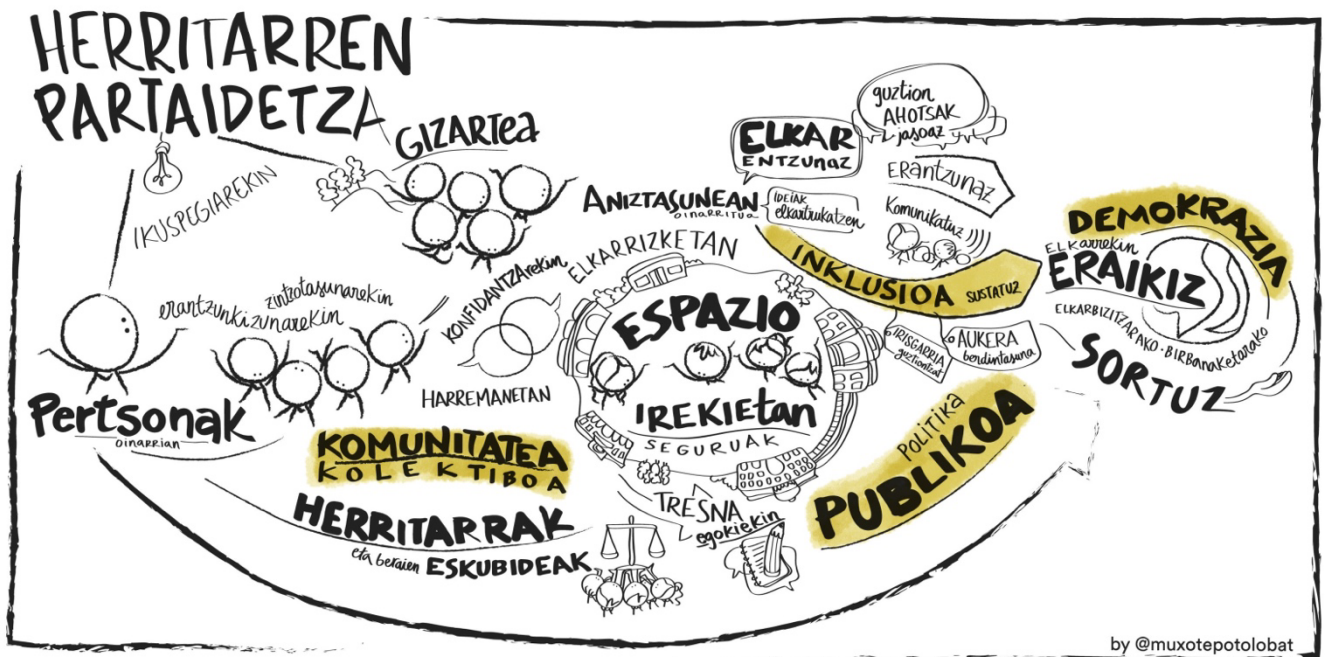 HERRITARREN
PARTAIDETZA
IKUSPEGIAREKIN
GIZARTEA
Pertsonak
oinarrian
erantzunkizunarekin
zintzotasunarekin
KONFIDANTZArekin
HARREMANETAN
KOMUNITATEA
KOLEKTIBOA
HERRITARRAK
eta beraien ESKUBIDEAK
ELKARRIZKETAN
ESPAZIO
IREKIETAN
SEGURUAK
TRESNA
egokiekin
ANIZTASUNEAN
OINARRITUA
IDEIAK
elkartrukatzen
ELKAR
ENTZUNAZ
guztion
AHOTSAK
jasoaz
ERANTZUNAZ
Komunikatuz
INKLUSIOA SUSTATUZ
IRISGARRIA
guztiontzat
AUKERA
berdintasuna
POLITIKA
PUBLIKOA
DEMOKRAZIA
ELKarrekin
ERAIKIZ
ELKARBIZITZARAKO · BIRBANAKETARAKO
SORTUZ
by @muxotepotolobat